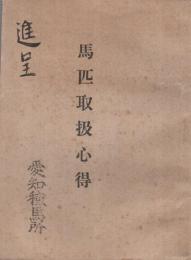 進呈
馬匹取扱心得
愛知種馬所